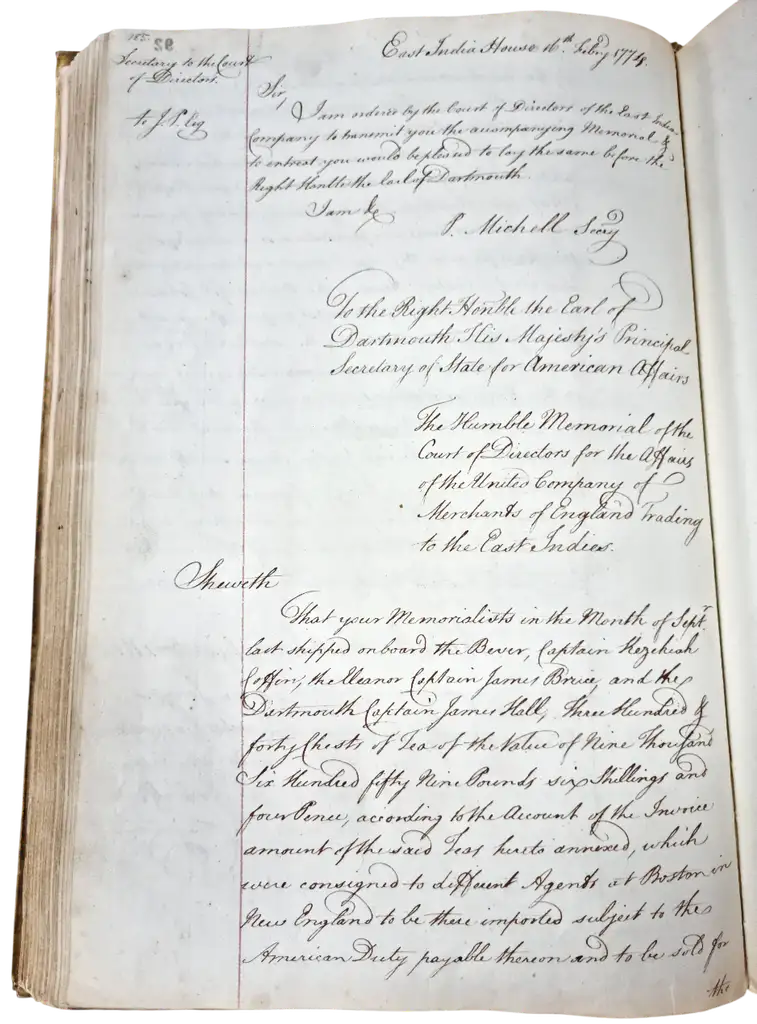 185.
92
Secretary to the Court
of Directors.
to J. P. Esq
East India House 16th. Febry 1774.
Sir,
I am ordered by the Court of Directors of the East India
Company to transmit you the accompanying Memorial &
to entreat you would be pleased to lay the same before the
Right Honble the Earl of Dartmouth.
I am &c
P. Michell Secry
To the Right Honble the Earl of
Dartmouth His Majesty's Principal
Secretary of State for American Affairs
The Humble Memorial of the
Court of Directors for the Affairs
of the United Company of
Merchants of England Trading
to the East Indies.
Sheweth
That your Memorialists in the Month of Septr.
last shipped on board the Bever, Captain Hezekiah
Coffin, the Eleanor Captain James Bruce, and the
Dartmouth Captain James Hall, Three Hundred &
forty Chests of Tea of the Value of Nine Thousand
Six Hundred fifty Nine Pounds six Shillings and
four Pence, according to the Account of the Invoice
amount of the said Teas hereto annexed, which
were consigned to different Agents at Boston in
New England to be there imported subject to the
American Duty payable thereon and to be sold for
the